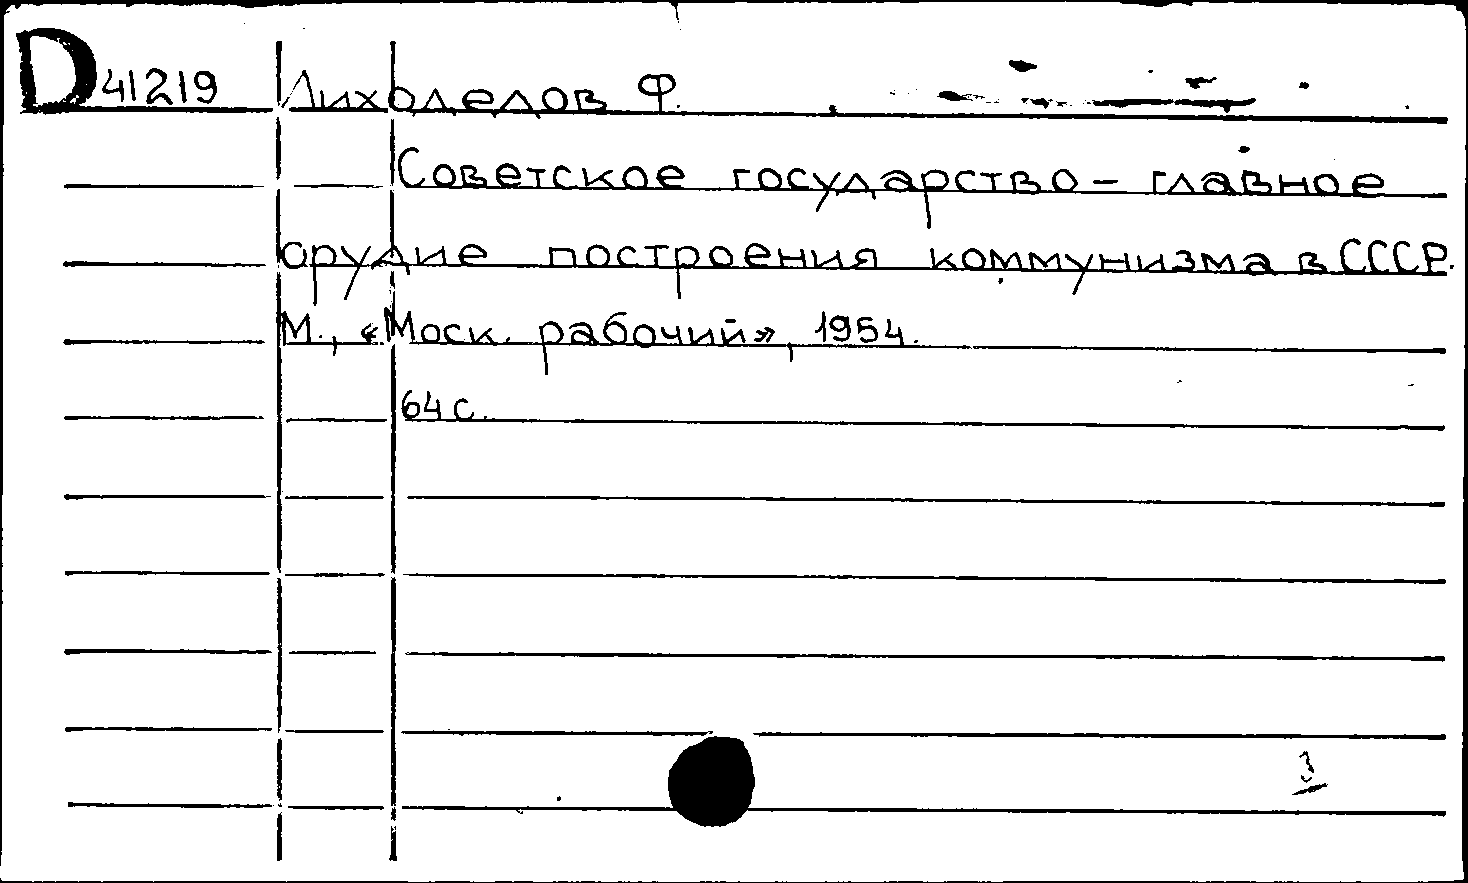 D 41219 Лиходедов Ф.
Советское государство – главное
орудие построения коммунизма в СССР.
М., «Моск. рабочий», 1954.
64 с.
3